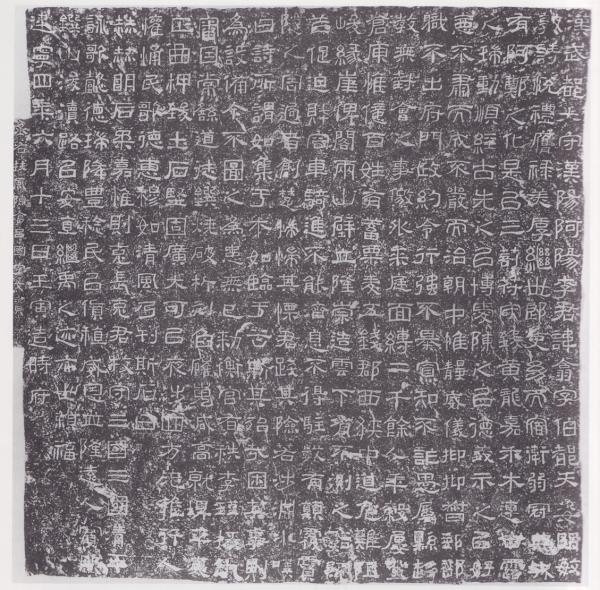 漢武都太守漢陽阿陽李君諱翕字伯都天姿明敏
敦詩悅禮膺祿美厚繼世郎吏幼而宿衛弱冠典城
有阿鄭之化是以三剖符守致黃龍嘉禾木連甘露
之瑞動順經古先之以博愛陳之以德義示之以好
惡不肅而成不嚴而治朝中惟靜威儀抑抑督郵部
職不出府門政約令行強不暴寡知不詐愚屬縣趨
教無對會之事儌外來庭面縛二千餘人年穀屢登
倉庾惟億百姓有蓄粟麥五錢郡西狹中道危難阻
峻緣崖俾閣兩山壁立隆崇造雲下有不測之谿阨
芐促迫財容車騎進不能濟息不得駐數有顛覆霣
隧之害過者創楚惴惴其慄君踐其險若涉淵冰嘆
曰詩所謂如集于木如臨于谷斯其殆哉困其事則
為設備今不圖之為患無已敕衡官有秩李瑾掾仇
審因常繇道徒鐉燒破析刻臽磪嵬減高就埤平夷
正曲柙致土石堅固廣大可以夜涉四方无雍行人
懽悀民歌德惠穆如清風乃刊斯石曰
赫赫明后柔嘉惟則克長克君牧守三國三國清平
詠歌懿德瑞降豐稔民以貨稙威恩並隆遠人賓服
鐉山浚瀆路以安直繼禹之迹亦世賴福
建寧四年六月十三日壬寅造時府